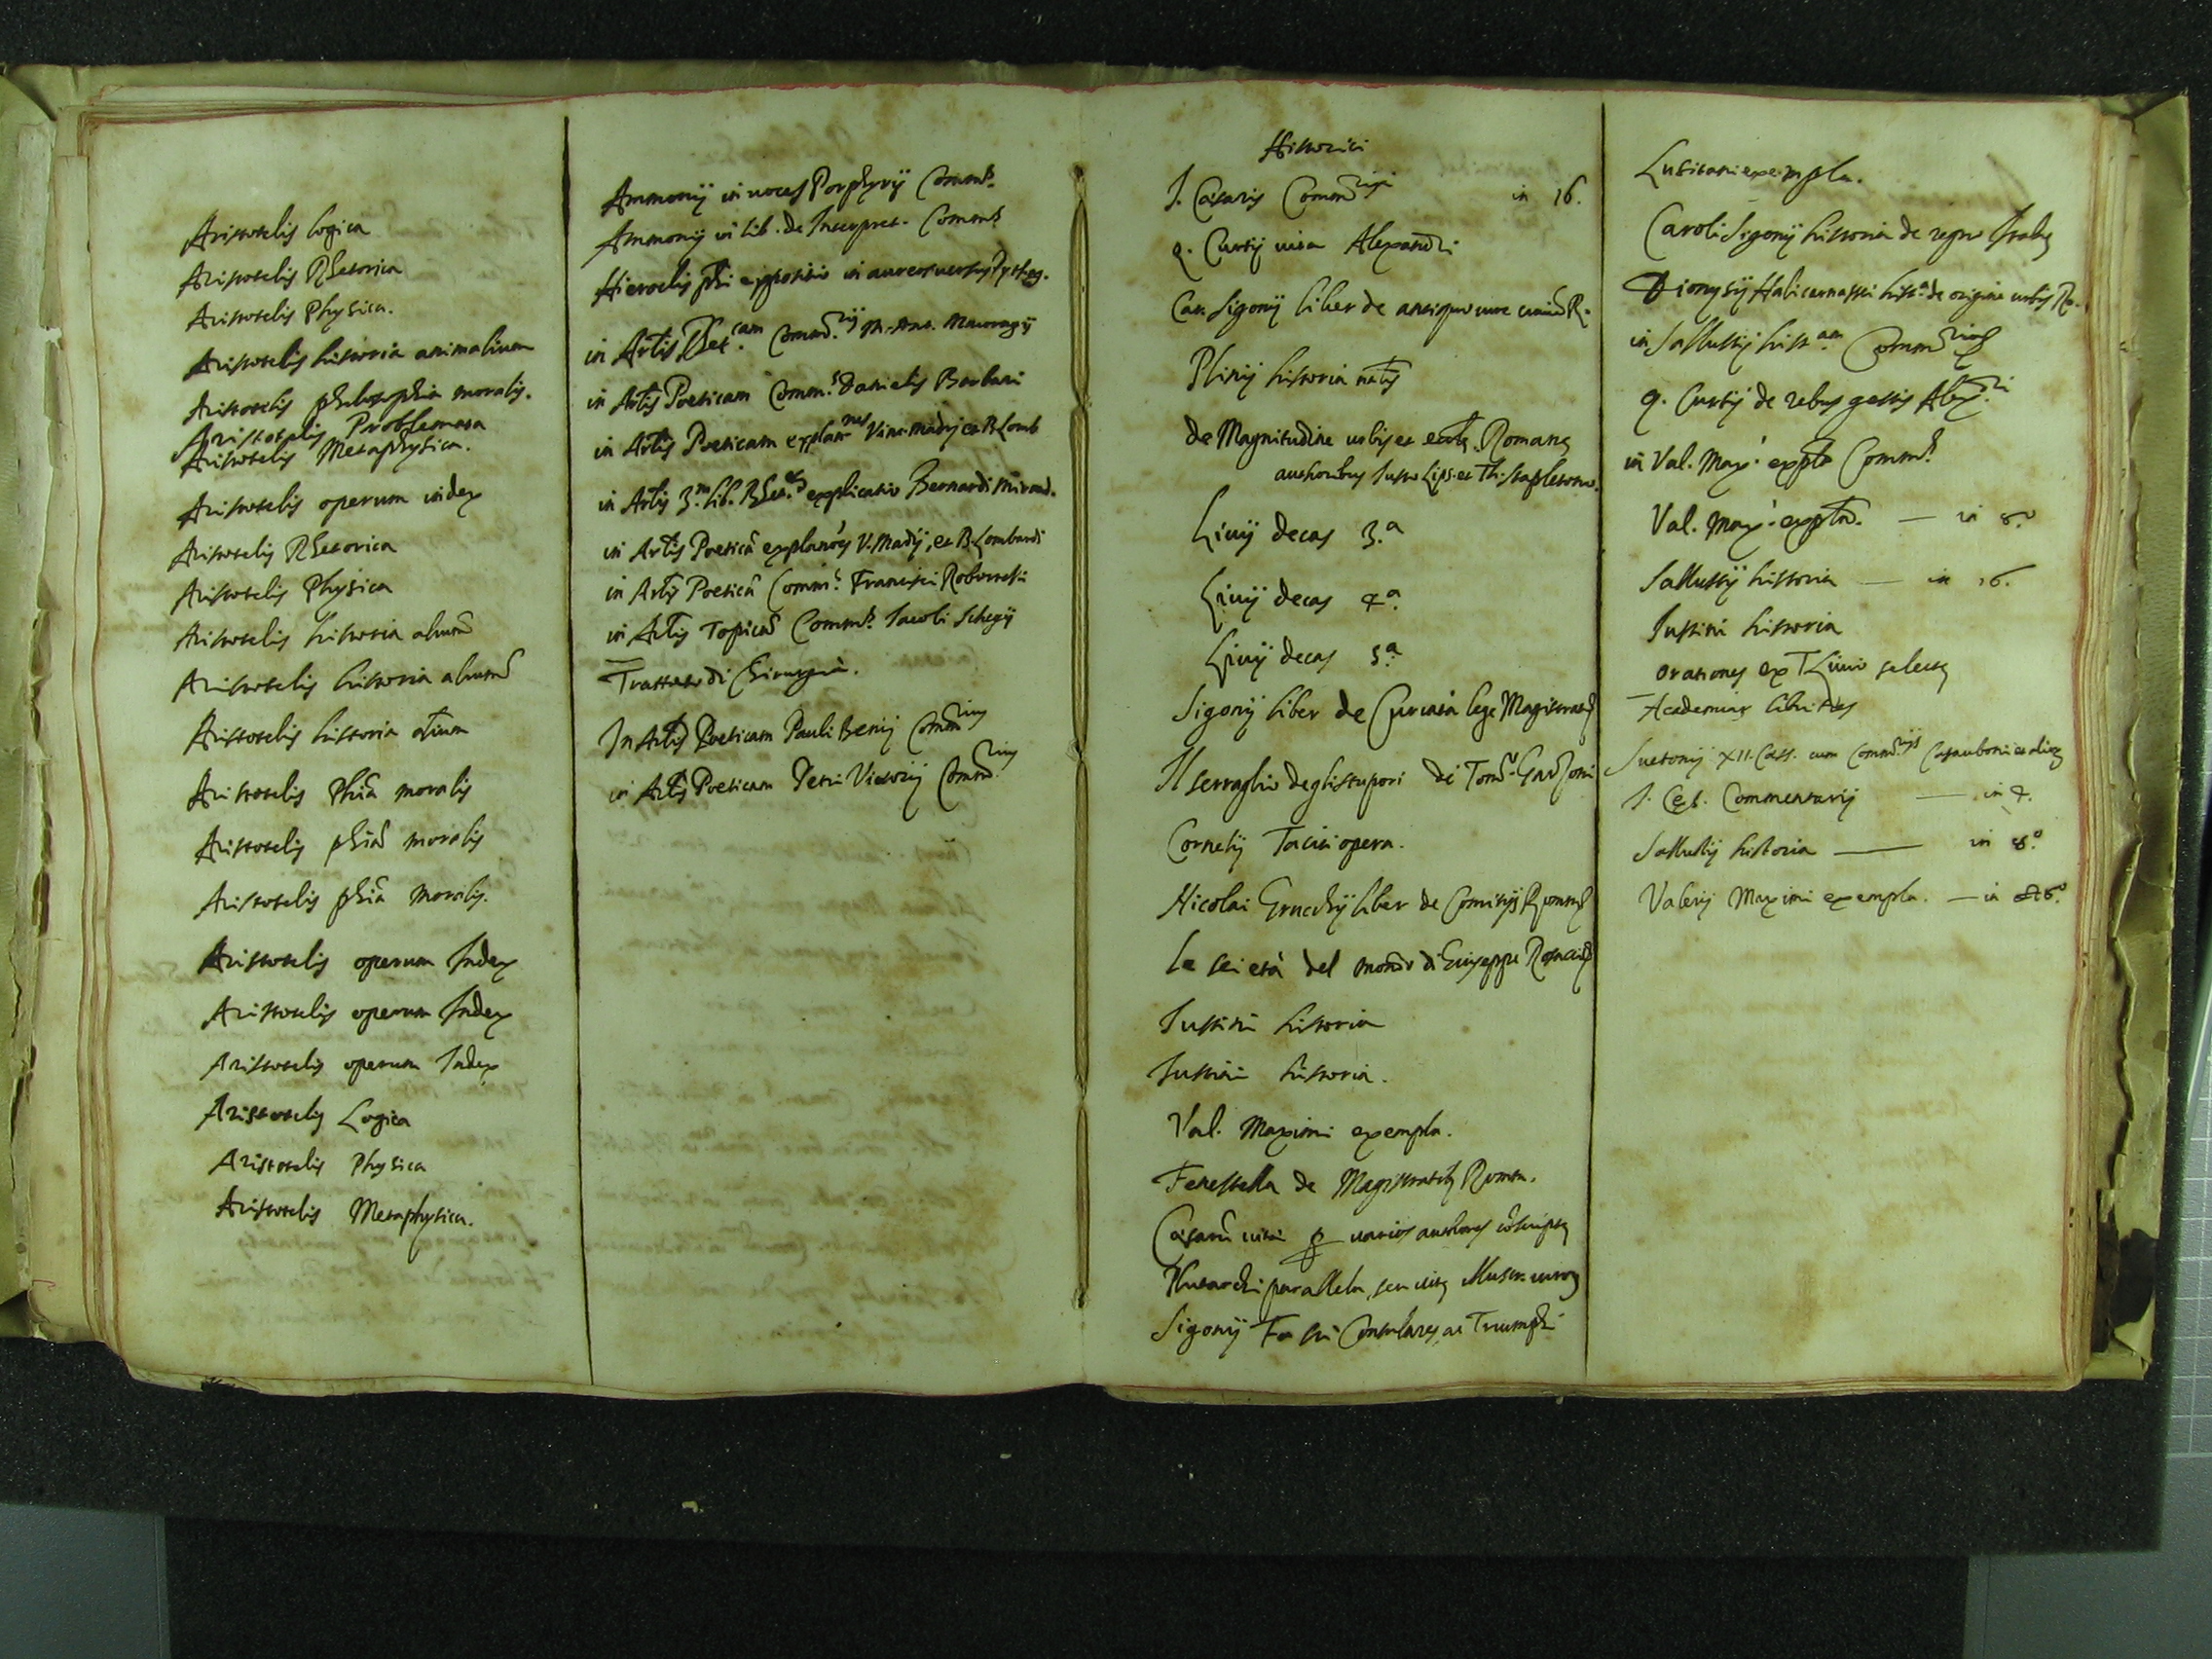 Aristotelis logica
Aristotelis Rhetorica
Aristotelis Physica.
Aristotelis historia animalium
Aristotelis philosophia moralis.
Aristotelis Problemata
Aristotelis Metaphysica.
Aristotelis operum index
Aristotelis Rhetorica
Aristotelis Physica
Aristotelis historia
Aristotelis historia
Aristotelis historia
Aristotelis Phia moralis
Aristotelis phia moralis
Aristotelis phia moralis.
Aristotelis operum Index
Aristotelis operum Index
Aristotelis operum Index
Aristotelis Logica
Aristotelis Physica
Aristotelis Metaphysica.
Ammonij in voces Porphyrij Comm.
Ammonij in lib. de Interpret. Comm.
Hieroclis phi expositio in aureos versus Pythag.
in Artis Rhet.cam Comm.rij M. Ant. Maioragij
in Artis Poeticam Comm. Danielis Barbari
in Artis Poeticam explan.nes Vinc. Madij et B. Lomb
in Artis 3.m lib. Rhet. explicatio Bernardi Mirand.
in Artis Poeticā explanões V. Madij, et B. Lombardi
in Artis Poeticā Comm. Francisci Robortelli
in Artis Topica Comm. Iacobi Schegij
Trattato di Chirurgia.
In Artis Poeticam Pauli Benij Comm.rius
in Artis Poeticam Petri Victorij Comm.rius
Historici
I. Cæsaris Comm.rij in 16.
Q. Curtij vita Alexandri
Car. Sigonij liber de antiquo iure civiū R.
Plinij historia natis
de Magnitudine urbis et Romanę
authoribus Iusto Lips. et Th. Stapletono.
Livij decas 3.a
Livij decas 4.a
Livij decas 5.a
Sigonij liber de Curiata lege Magistrat
Il serraglio degli stupori di Tom.o Garzoni
Cornelij Taciti opera.
Nicolai Grucchij liber de Comitijs Roman
Le sei età del mondo di Giuseppe Rosaccio
Iustini historia
Iustini historia.
Val. Maximi exempla.
Fenestella de Magistratib Roma.
Cæsarū vitæ varios authores
Plutarchi parallela, seu vitę illustr. viroꝝ
Sigonij Fasti Consulares, ac Triumphi
Lusitani exempla.
Caroli Sigonij historia de regno Italię
Dionysij Halicarnassei hist.a de origine urbis Ro.
in Sallustij hist.am Comm.
Q. Curtij de rebus gestis Alex.ri
in Val. Max. expla Comm.
Val. Max. expla. — in 8.o
Sallustij historia — in 16.
Iustini historia
orationes ex T. Livio selectę
Academiæ
Suetonij XII. Cæss. cum Comm.rijs Casauboni et alioꝝ
I. Cęs. Commentarij — in 4.
Sallustij historia — in 8.o
Valerij Maximi exempla. — in